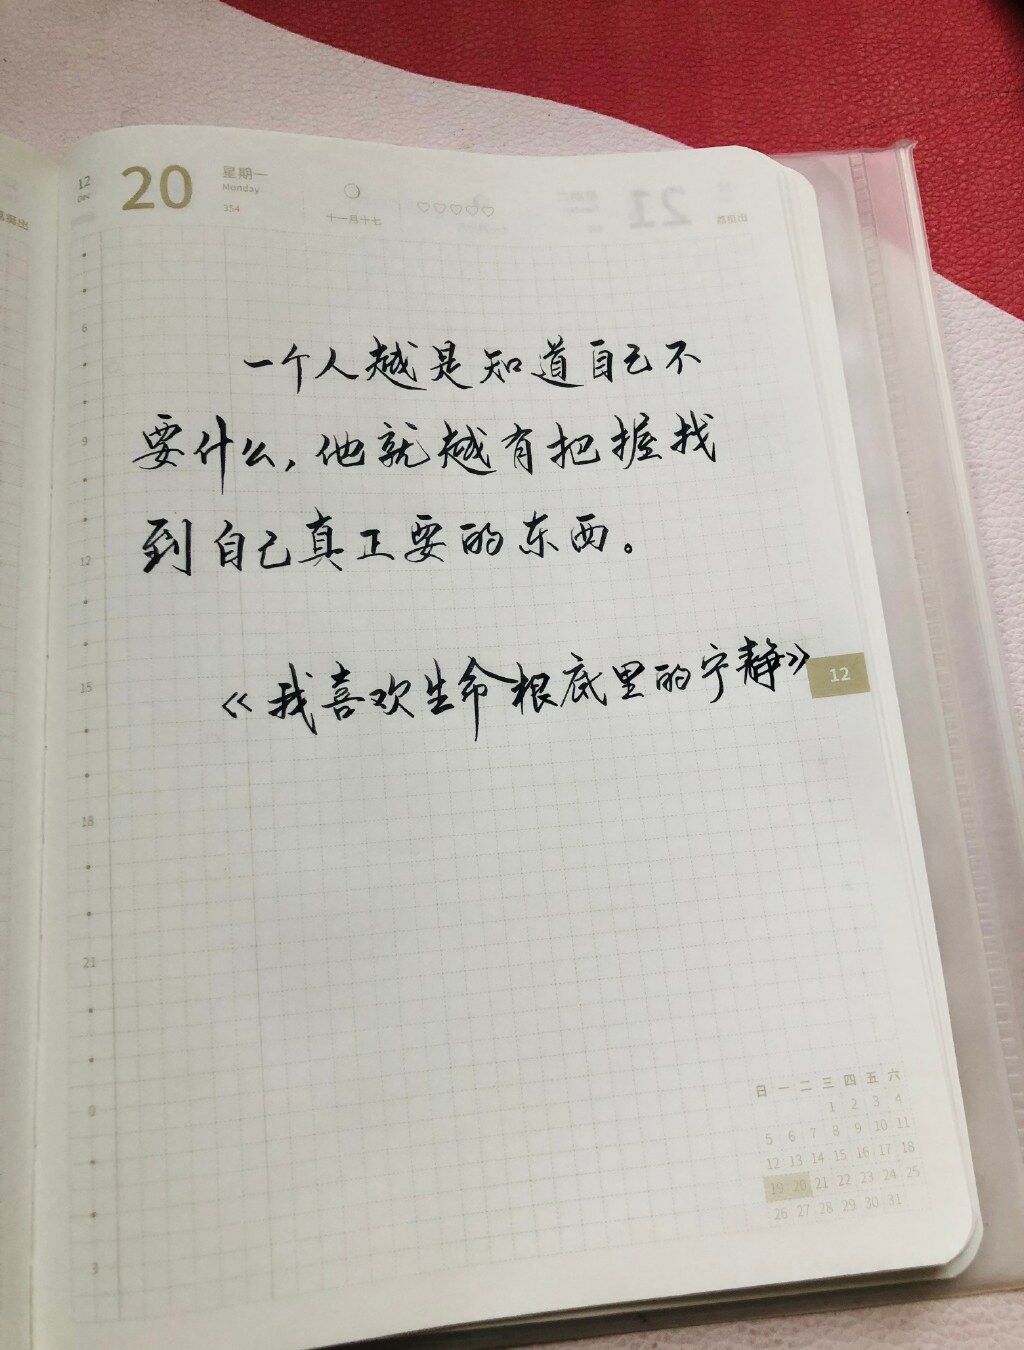 12
Dec
20
星期一
Monday
354
十一月十七
荔挺出
一个人越是知道自己不
要什么，他就越有把握找
到自己真正要的东西。
《我喜欢生命根底里的宁静》
12
6
9
12
15
18
21
0
3
日 一 二 三 四 五 六
1 2 3 4
5 6 7 8 9 10 11
12 13 14 15 16 17 18
19 20 21 22 23 24 25
26 27 28 29 30 31